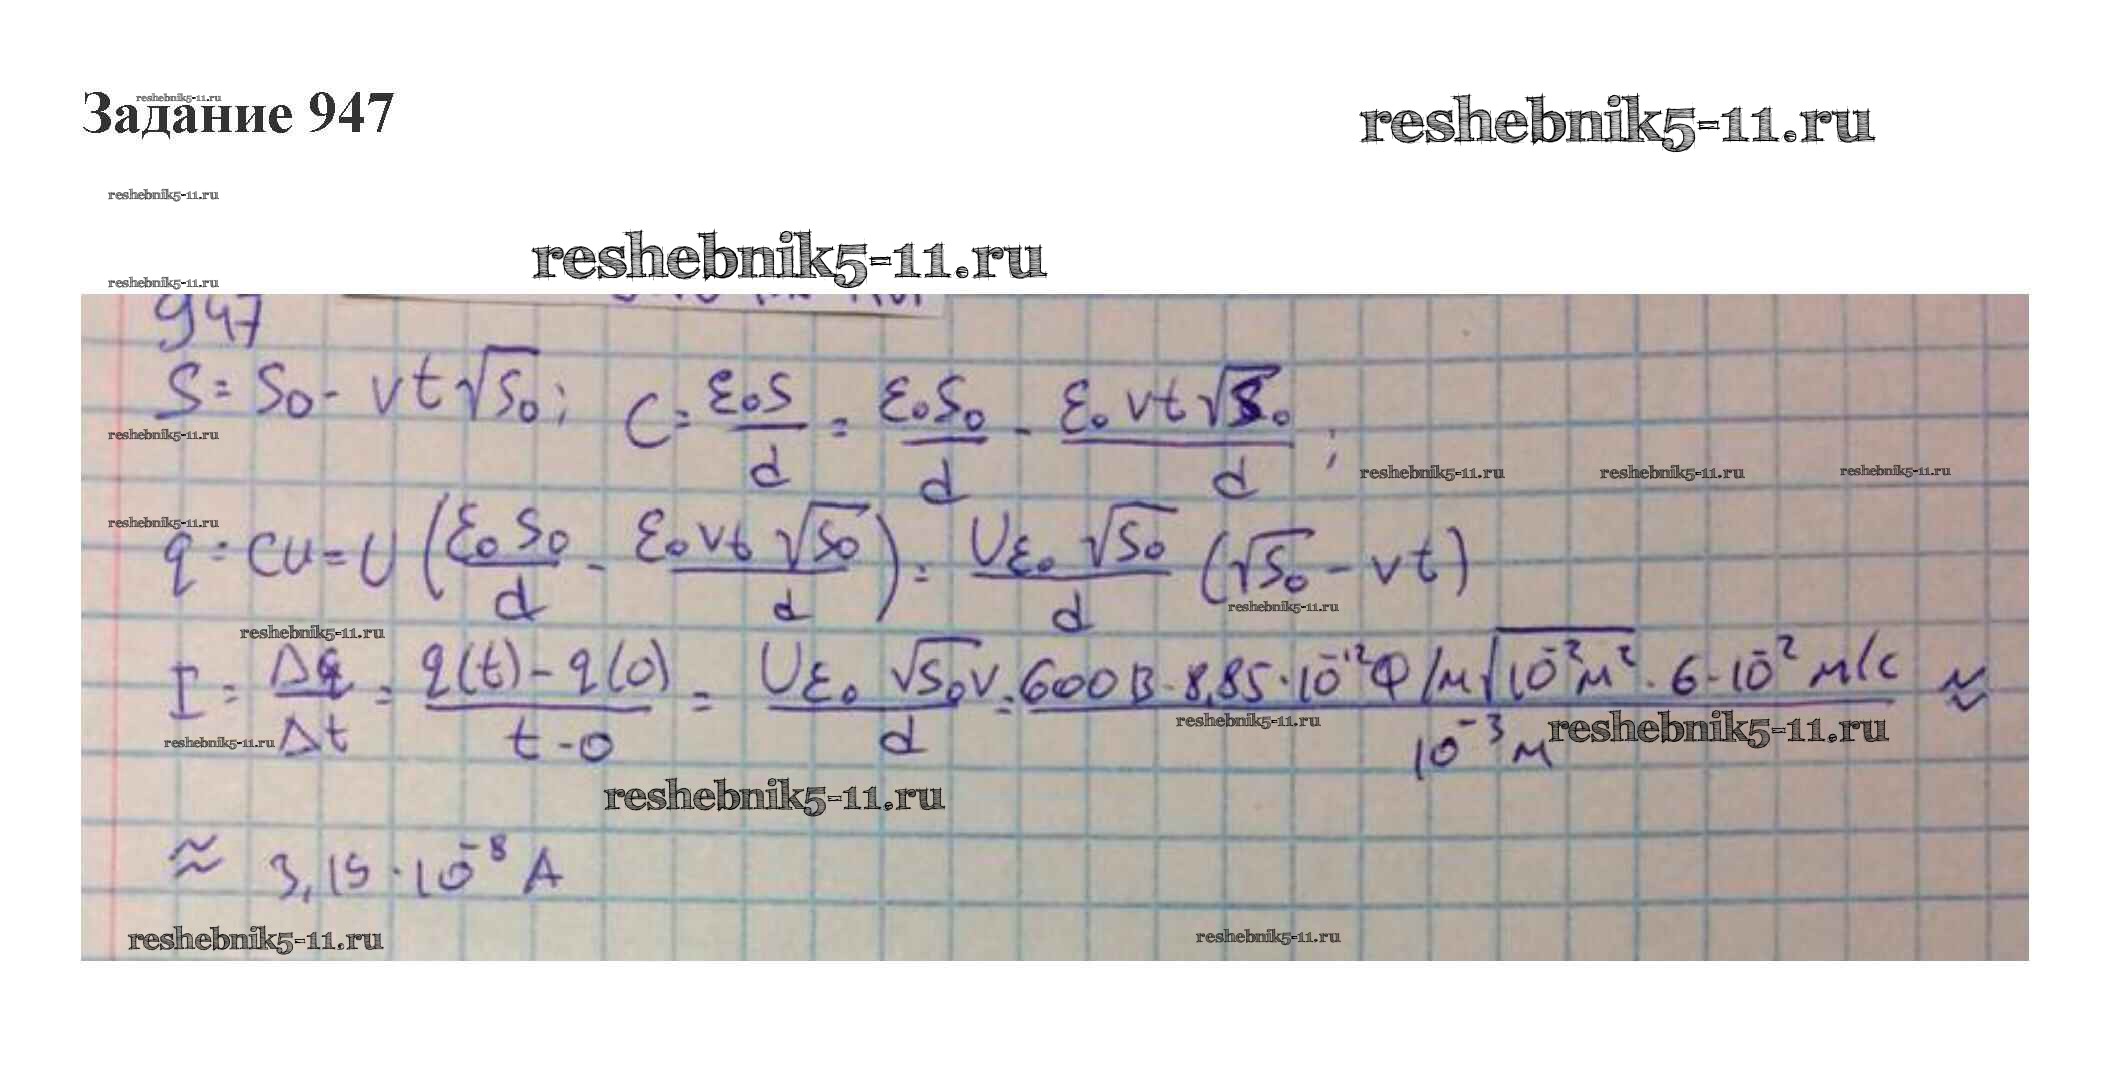 Задание 947
reshebnik5-11.ru
reshebnik5-11.ru
reshebnik5-11.ru
reshebnik5-11.ru
reshebnik5-11.ru
947
S = S₀ - vt√S₀; C = ε₀S/d = ε₀S₀/d - ε₀vt√S₀/d;
reshebnik5-11.ru
reshebnik5-11.ru reshebnik5-11.ru reshebnik5-11.ru
reshebnik5-11.ru
q = CU = U(ε₀S₀/d - ε₀vt√S₀/d) = Uε₀√S₀/d (√S₀ - vt)
reshebnik5-11.ru
reshebnik5-11.ru
I = Δq/Δt = q(t) - q(0)/t - 0 = Uε₀√S₀v/d = 600В · 8,85 · 10⁻¹²Ф/м√10⁻²м² · 6 · 10⁻² м/с/10⁻³м ≈
reshebnik5-11.ru reshebnik5-11.ru
reshebnik5-11.ru
reshebnik5-11.ru
≈ 3,19 · 10⁻⁸ А
reshebnik5-11.ru reshebnik5-11.ru